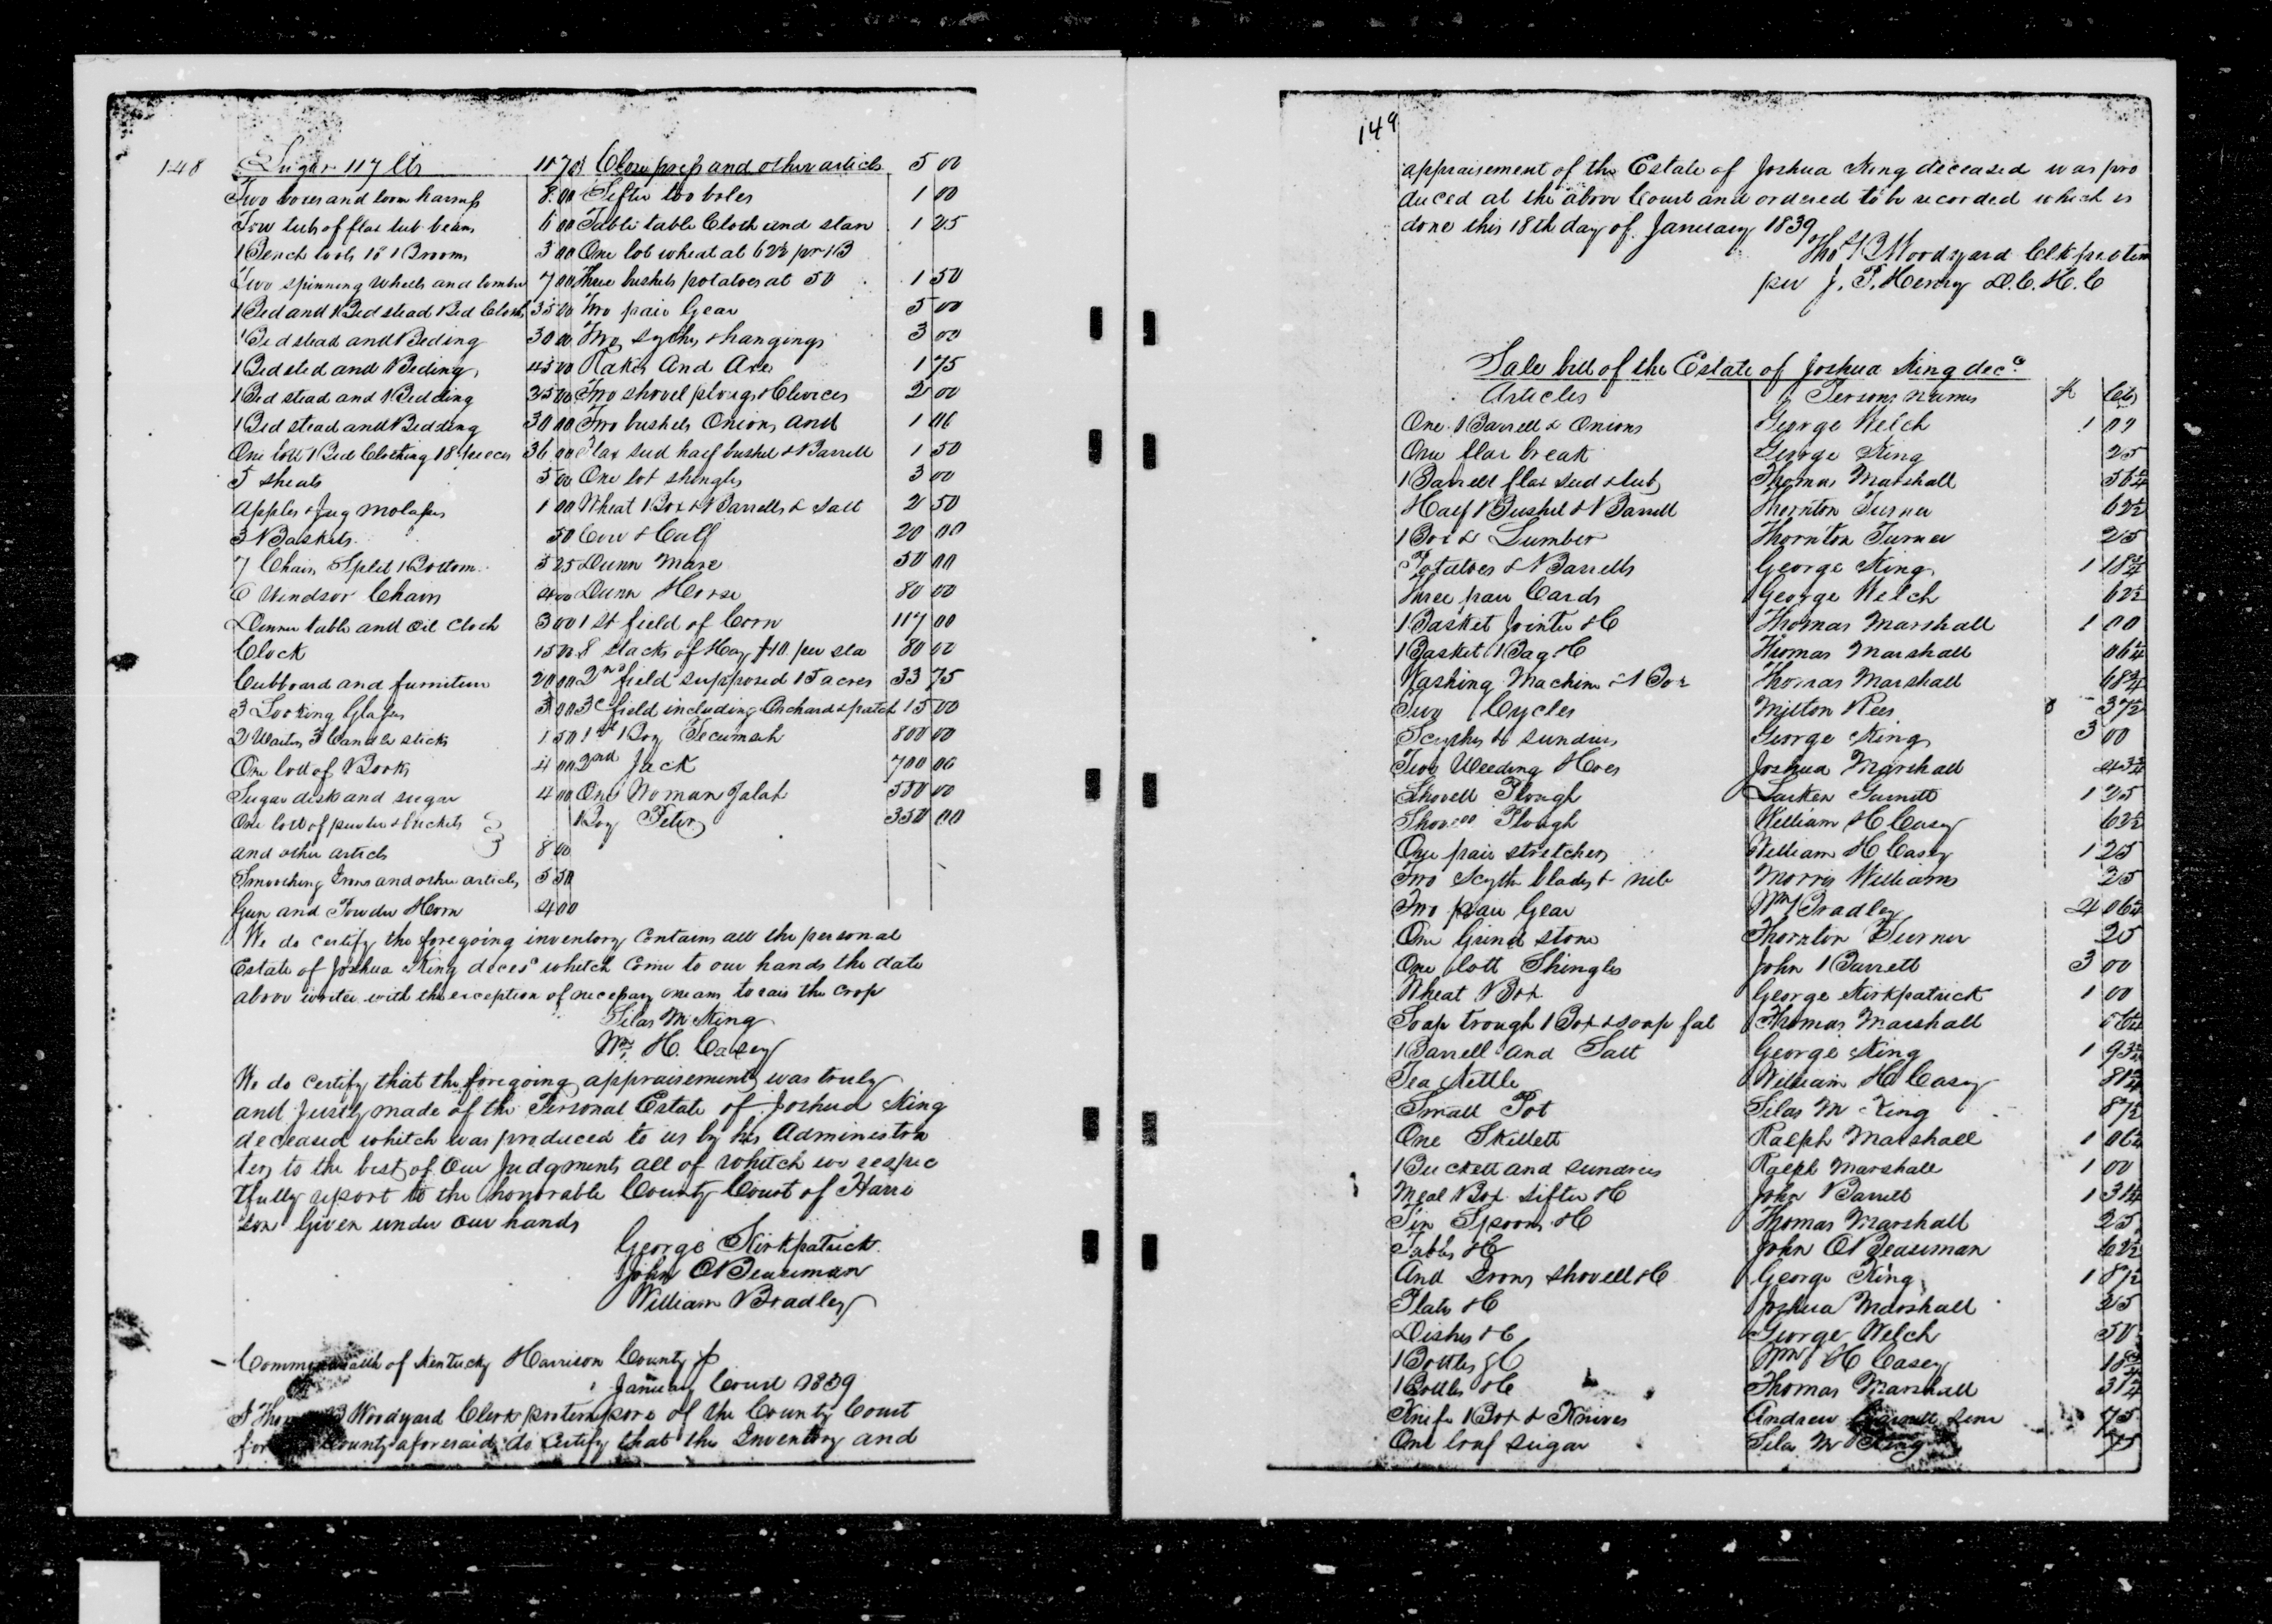 148
Sugar 117 lb 11 70
Two boxes and loom harness 8 00
Tow tub of flax tub beans 6 00
1 Bench tools 1 Broom 3 00
Two spinning wheels and lumber 7 00
1 Bed and Bedstead Bed Cloths 35 00
1 Bed stead and Beding 30 00
1 Bed sted and Beding 45 00
1 Bed stead and Bedding 35 00
1 Bed stead and Bedding 30 00
One lott Bed Clothing 18 peeces 36 00
5 sheats 5 00
Apples & Jug molasses 1 00
3 Baskets 50
7 Chairs Split Bottom 5 25
6 Windsor Chairs 4 00
Dinner table and oil cloth 3 00
Clock 15 00
Cubboard and furniture 20 00
3 Looking Glasses 3 00
2 Waiters 3 Candle sticks 1 50
One lott of Books 4 00
Sugar disk and sugar 4 00
One lott of pewter & buckets
and other articls 8 00
Smoothing Irons and other articles 5 50
Gun and Powder Horn 4 00
Close press and other articls 5 00
Sifter too boles 1 00
Table table Cloth and stan 1 25
One lot wheat at 62½ pr B
Three bushels potatoes at 50 1 50
Two pair Gear 5 00
Two sythes & hangings 3 00
Rakes And Axes 1 75
Two shovel ploughs & Clevices 2 00
Two bushels Onions and 1 00
Flax seed half bushel & Barrell 1 50
One lot shingles 3 00
Wheat Box & Barrells & salt 2 50
Cow & Calf 20 00
Dunn Mare 50 00
Dunn Horse 80 00
1 St field of Corn 117 00
8 stacks of Hay $10 per sta 80 00
2nd field supposed 15 acres 33 75
3d field including Orchard & patch 15 00
1st Boy Tecumseh 800 00
2nd Jack 700 00
One Woman Jalah 550 00
Boy Peter 350 00
We do certify the foregoing inventory contains all the personal
Estate of Joshua King decesd whitch come to our hands the date
above writen with the exception of necessary means to rais the crop
Silas M King
Wm H. Casey
We do certify that the foregoing appraisement was truly
and justly made of the Personal Estate of Joshua King
deceased whitch was produced to us by his Administra
tors to the best of our Judgments all of whitch we respec
tfully report to the honorable County Court of Harri
son Given under our hands
George Kirkpatrick
John O Beaseman
William Bradley
Commonwealth of Kentucky Harrison County
January Court 1839
I Woodyard Clerk protempore of the County Court
for County aforesaid do certify that the Inventory and
149
appraisement of the Estate of Joshua King deceased was pro
duced at the above Court and ordered to be recorded which is
done this 18th day of January 1839
Woodyard Clk protem
per J. T. Henry D.C.H.C
Sale bill of the Estate of Joshua King decd
Articles Persons names $ Cts
One Barrell & Onions George Welch 1 00
One flax break George King 25
1 Barrell flax seed & tub Thomas Marshall 56¼
Half Bushel & Barrell Thornton Turner 62½
1 Box & Lumber Thornton Turner 25
Potatoes & Barrells George King 1 18¾
Three pair Cards George Welch 62½
1 Basket Jointer &C Thomas Marshall 1 00
1 Basket Bag &C Thomas Marshall 06¼
Washing Machine & Box Thomas Marshall 68¾
Two Cycles Milton Rees 37½
Scythes & sundries George King 3 00
Two Weeding Hoes Joshua Marshall 43¾
Shovell Plough Larken Garnett 1 25
Shovell Plough William H Casey 62½
One pair stretchers William H Casey 1 25
Two Scythe blades & neb Morris Williams 25
Two pair Gear Wm Bradley 4 06¼
One Grind stone Thornton Turner 25
One lott Shingles John Barrett 3 00
Wheat Box George Kirkpatrick 1 00
Soap trough Box & soap fat Thomas Marshall 56¼
1 Barrell and Salt George King 1 93¾
Tea Kettle William H Casey 81¼
Small Pot Silas M King 87½
One Skillett Ralph Marshall 1 06¼
1 Buckett and sundries Ralph Marshall 1 00
Meal Box Sifter &C John Barrett 1 31¼
Tin Spoons &C Thomas Marshall 25
Table &C John O Beaseman 62½
And Irons shovell &C George King 1 87½
Plates &C Joshua Marshall 25
Dishes &C George Welch 50
1 Bottles &C Wm H Casey 18¾
1 Bottles &C Thomas Marshall 31¼
Knife Box & Knives Andrew Garnett Senr 75
One loaf sugar Silas M King 75